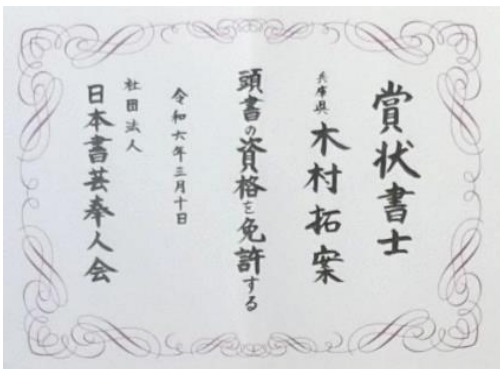 賞状書士
兵庫県 木村拓案
頭書の資格を免許する
令和六年三月十日
社団法人
日本書芸奉人会